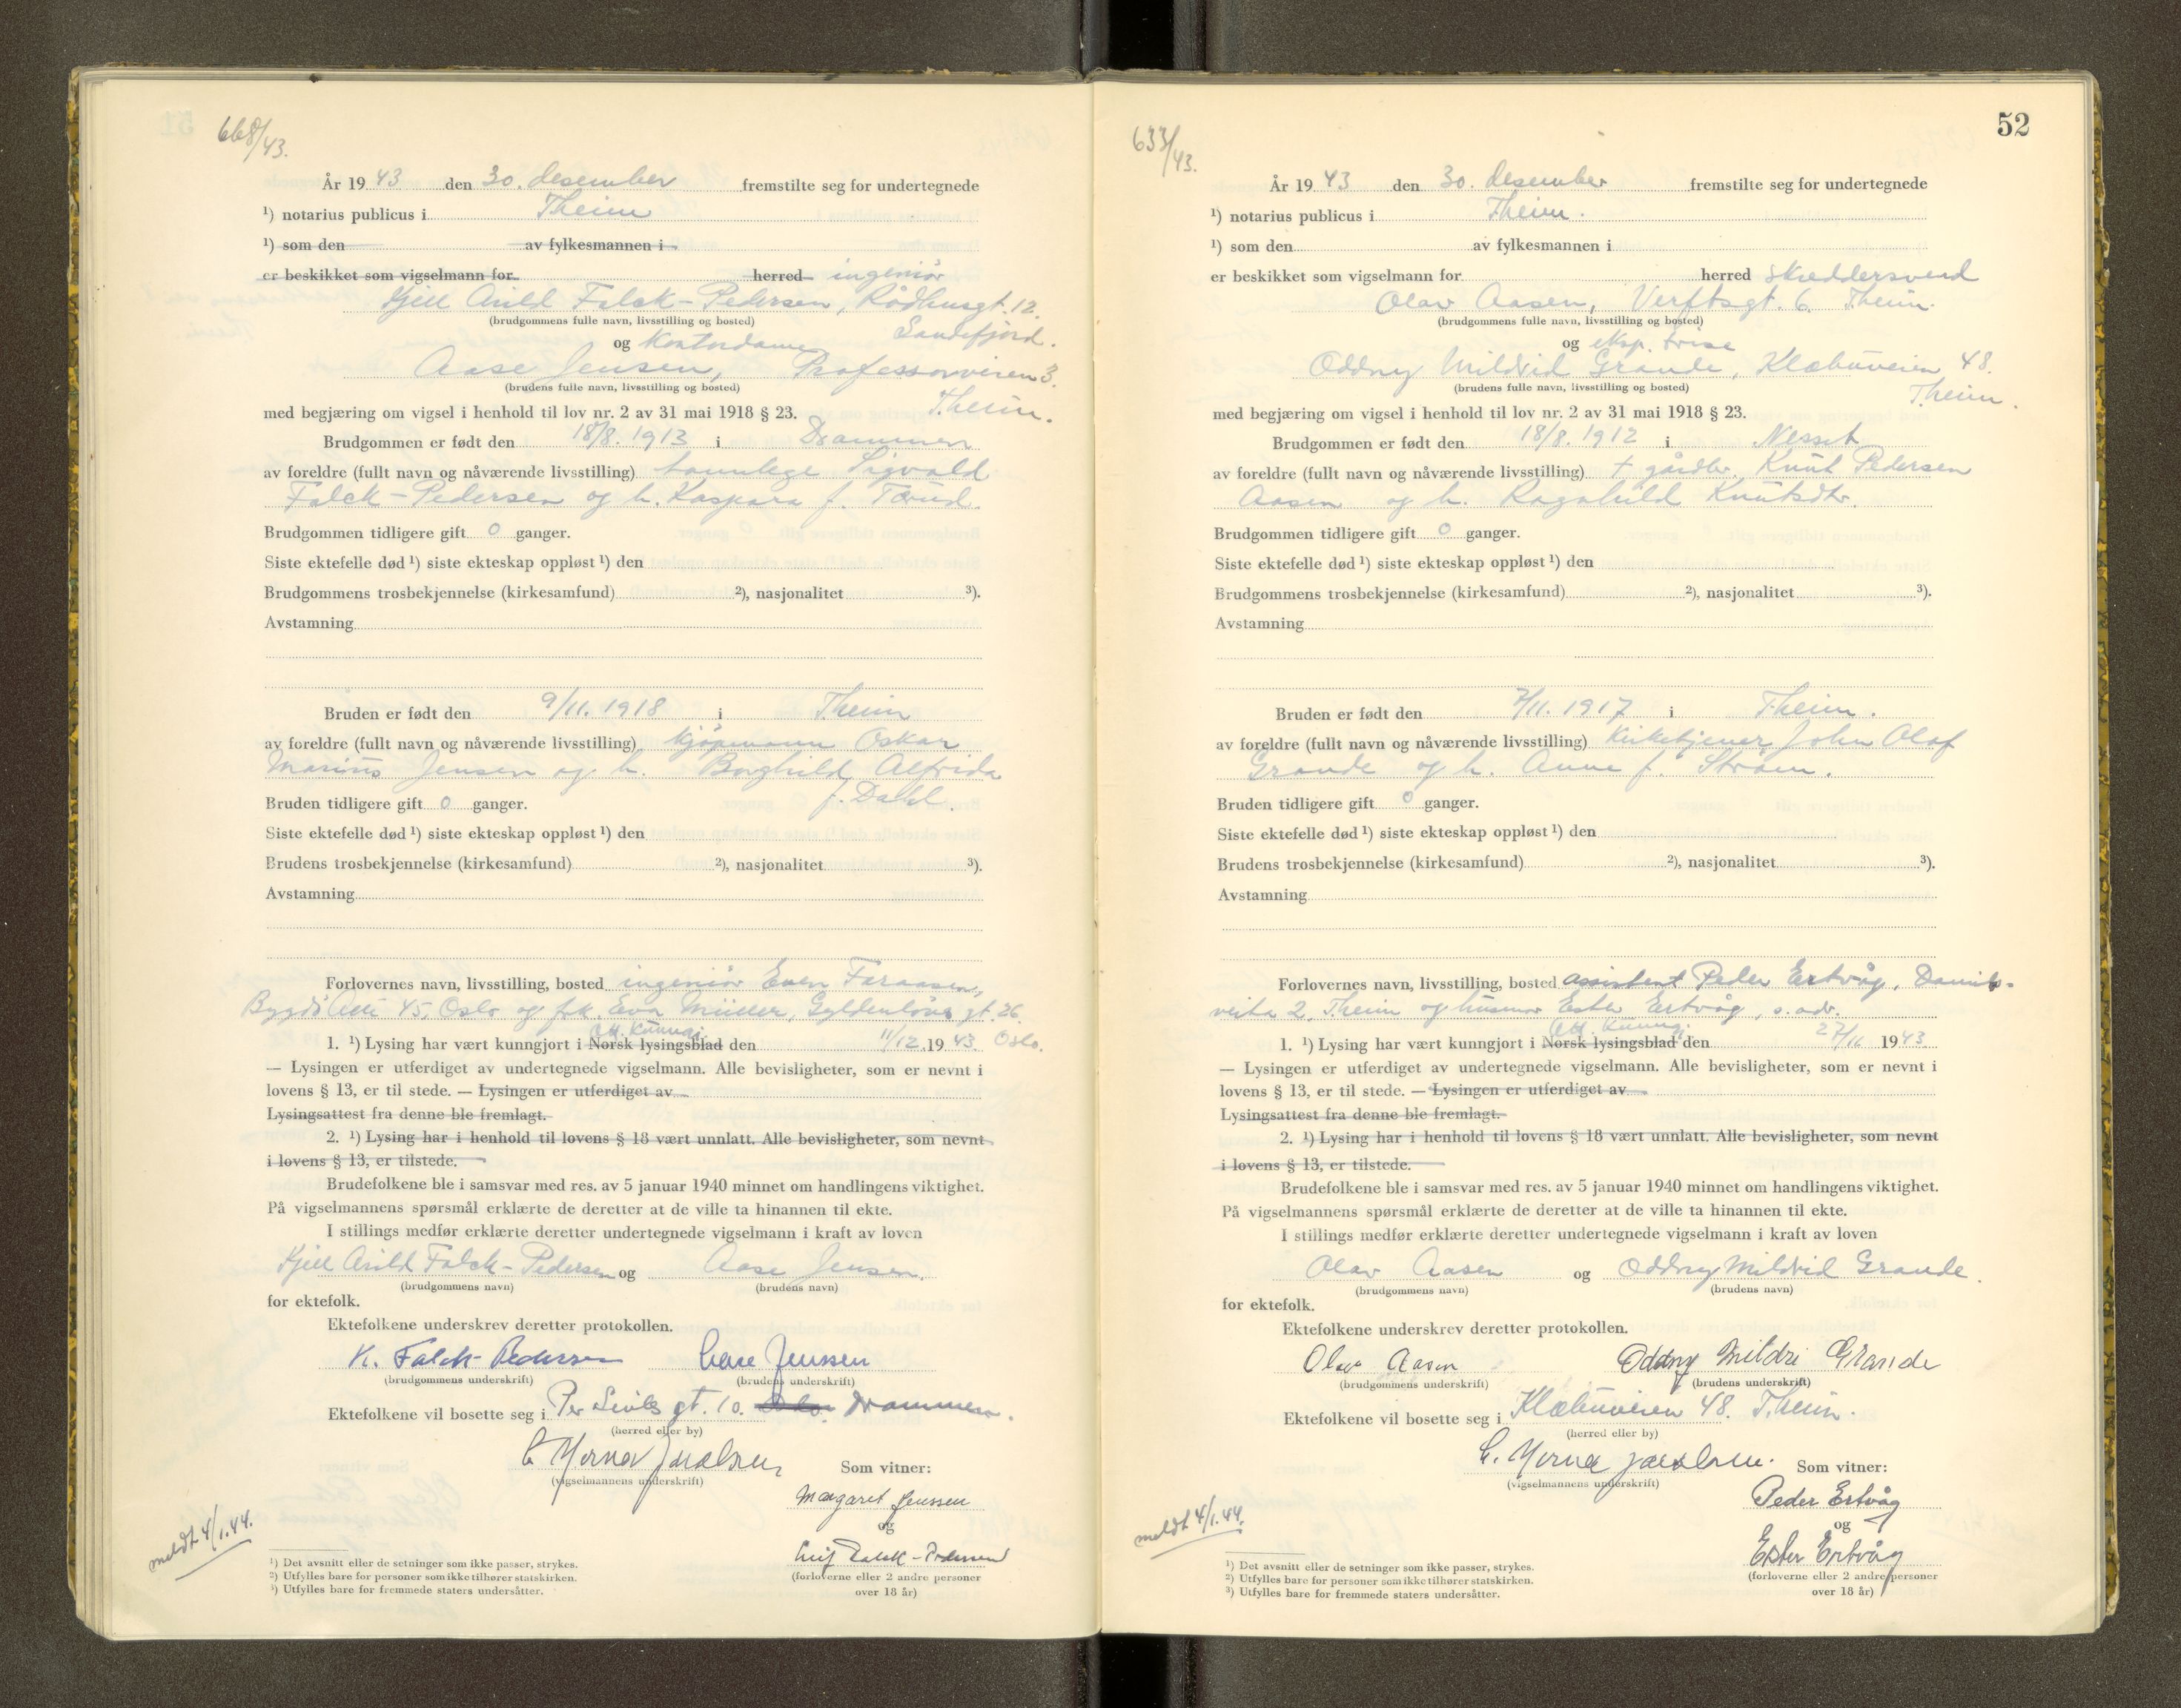 668/43.
År 1943 den 30. desember fremstilte seg for undertegnede
¹) notarius publicus i Theim
¹) som den av fylkesmannen i
er beskikket som vigselmann for herred ingeniør
Kjell Arild Falck-Pedersen, Rådhusgt. 12.
(brudgommens fulle navn, livsstilling og bosted)
Sandefjord.
og Kontordame
Aase Jensen, Professorveien 3.
(brudens fulle navn, livsstilling og bosted)
Theim.
med begjæring om vigsel i henhold til lov nr. 2 av 31 mai 1918 § 23.
Brudgommen er født den 18/8. 1913 i Drammen
av foreldre (fullt navn og nåværende livsstilling) tannlege Sigvald
Falck-Pedersen og h. Kaspara f.
Brudgommen tidligere gift 0 ganger.
Siste ektefelle død ¹) siste ekteskap oppløst ¹) den
Brudgommens trosbekjennelse (kirkesamfund) ²), nasjonalitet ³).
Avstamning
Bruden er født den 9/11. 1918 i Theim
av foreldre (fullt navn og nåværende livsstilling) kjøpmann Oskar
Marius Jensen og h. Borghild Alfrida
f. Dahl.
Bruden tidligere gift 0 ganger.
Siste ektefelle død ¹) siste ekteskap oppløst ¹) den
Brudens trosbekjennelse (kirkesamfund) ²), nasjonalitet ³).
Avstamning
Forlovernes navn, livsstilling, bosted ingeniør Even
Bygdø Allé 45, Oslo og frk. Eva Müller, Gyldenløves gt. 26.
Oslo.
1. ¹) Lysing har vært kunngjort i Norsk lysingsblad den 11/12. 1943.
— Lysingen er utferdiget av undertegnede vigselmann. Alle bevisligheter, som er nevnt i
lovens § 13, er til stede. — Lysingen er utferdiget av
Lysingsattest fra denne ble fremlagt.
2. ¹) Lysing har i henhold til lovens § 18 vært unnlatt. Alle bevisligheter, som nevnt
i lovens § 13, er tilstede.
Brudefolkene ble i samsvar med res. av 5 januar 1940 minnet om handlingens viktighet.
På vigselmannens spørsmål erklærte de deretter at de ville ta hinannen til ekte.
I stillings medfør erklærte deretter undertegnede vigselmann i kraft av loven
Kjell Arild Falck-Pedersen og Aase Jensen.
(brudgommens navn) (brudens navn)
for ektefolk.
Ektefolkene underskrev deretter protokollen.
K. Falck-Pedersen Aase Jenssen
(brudgommens underskrift) (brudens underskrift)
Ektefolkene vil bosette seg i Per Sivles gt. 10. Drammen.
(herred eller by)
(vigselmannens underskrift)
Som vitner:
Margaret Jenssen
og
Leif Falck-Pedersen
(forloverne eller 2 andre personer
over 18 år)
meldt 4/1.44.
¹) Det avsnitt eller de setninger som ikke passer, strykes.
²) Utfylles bare for personer som ikke tilhører statskirken.
³) Utfylles bare for fremmede staters undersåtter.
52
633/43.
År 1943 den 30. desember fremstilte seg for undertegnede
¹) notarius publicus i Theim.
¹) som den av fylkesmannen i
er beskikket som vigselmann for herred skreddersvend
Olav Aasen, Verftsgt. 6. Theim.
(brudgommens fulle navn, livsstilling og bosted)
og eksp. trise
Oddny Mildrid Grande, Klæbuveien 48.
(brudens fulle navn, livsstilling og bosted)
Theim.
med begjæring om vigsel i henhold til lov nr. 2 av 31 mai 1918 § 23.
Brudgommen er født den 18/8. 1912 i Nesset
av foreldre (fullt navn og nåværende livsstilling) + gårdbr. Knut Pedersen
Aasen og h. Ragnhild Knutsdtr.
Brudgommen tidligere gift 0 ganger.
Siste ektefelle død ¹) siste ekteskap oppløst ¹) den
Brudgommens trosbekjennelse (kirkesamfund) ²), nasjonalitet ³).
Avstamning
Bruden er født den 7/11. 1917 i Theim.
av foreldre (fullt navn og nåværende livsstilling) Kirketjener John Olaf
Grande og h. Anna f. Strøm.
Bruden tidligere gift 0 ganger.
Siste ektefelle død ¹) siste ekteskap oppløst ¹) den
Brudens trosbekjennelse (kirkesamfund) ²), nasjonalitet ³).
Avstamning
Forlovernes navn, livsstilling, bosted assistent Peder Ertvåg,
veita 2, Theim og husmor Ester Ertvåg, s. adr.
1. ¹) Lysing har vært kunngjort i Norsk lysingsblad den 27/11 1943
— Lysingen er utferdiget av undertegnede vigselmann. Alle bevisligheter, som er nevnt i
lovens § 13, er til stede. — Lysingen er utferdiget av
Lysingsattest fra denne ble fremlagt.
2. ¹) Lysing har i henhold til lovens § 18 vært unnlatt. Alle bevisligheter, som nevnt
i lovens § 13, er tilstede.
Brudefolkene ble i samsvar med res. av 5 januar 1940 minnet om handlingens viktighet.
På vigselmannens spørsmål erklærte de deretter at de ville ta hinannen til ekte.
I stillings medfør erklærte deretter undertegnede vigselmann i kraft av loven
Olav Aasen og Oddny Mildrid Grande.
(brudgommens navn) (brudens navn)
for ektefolk.
Ektefolkene underskrev deretter protokollen.
Olav Aasen Oddny Mildri Grande
(brudgommens underskrift) (brudens underskrift)
Ektefolkene vil bosette seg i Klæbuveien 48. Theim.
(herred eller by)
(vigselmannens underskrift)
Som vitner:
Peder Ertvåg
og
Ester Ertvåg
(forloverne eller 2 andre personer
over 18 år)
meldt 4/1.44.
¹) Det avsnitt eller de setninger som ikke passer, strykes.
²) Utfylles bare for personer som ikke tilhører statskirken.
³) Utfylles bare for fremmede staters undersåtter.